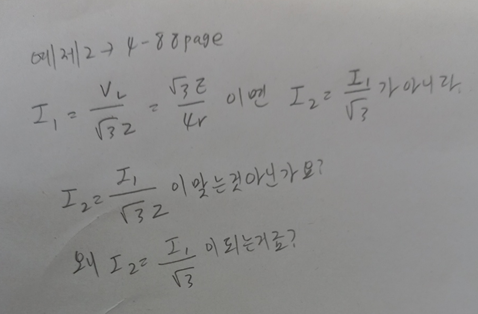 예제2 → 4-88page
I₁ = V_L/√3Z = √3E/4r 이면 I₂ = I₁/√3 가 아니라
I₂ = I₁/√3Z 이 맞는것아닌가요?
왜 I₂ = I₁/√3 이 되는거죠?